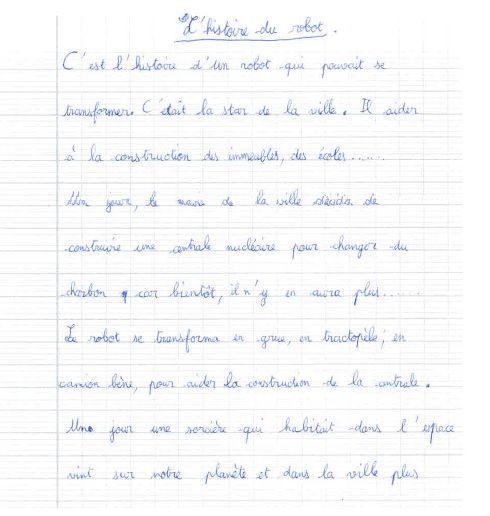 L'histoire du robot.
C'est l'histoire d'un robot qui pouvait se
transformer. C'était la star de la ville. Il aider
à la construction des immeubles, des écoles......
Un jour, le maire de la ville décida de
construire une centrale nucléaire pour changer du
charbon, car bientôt, il n'y en aura plus......
Le robot se transforma en grue, en tractopèle, en
camion bène, pour aider la construction de la centrale.
Un jour une sorcière qui habitait dans l'espace
vint sur notre planète et dans la ville plus